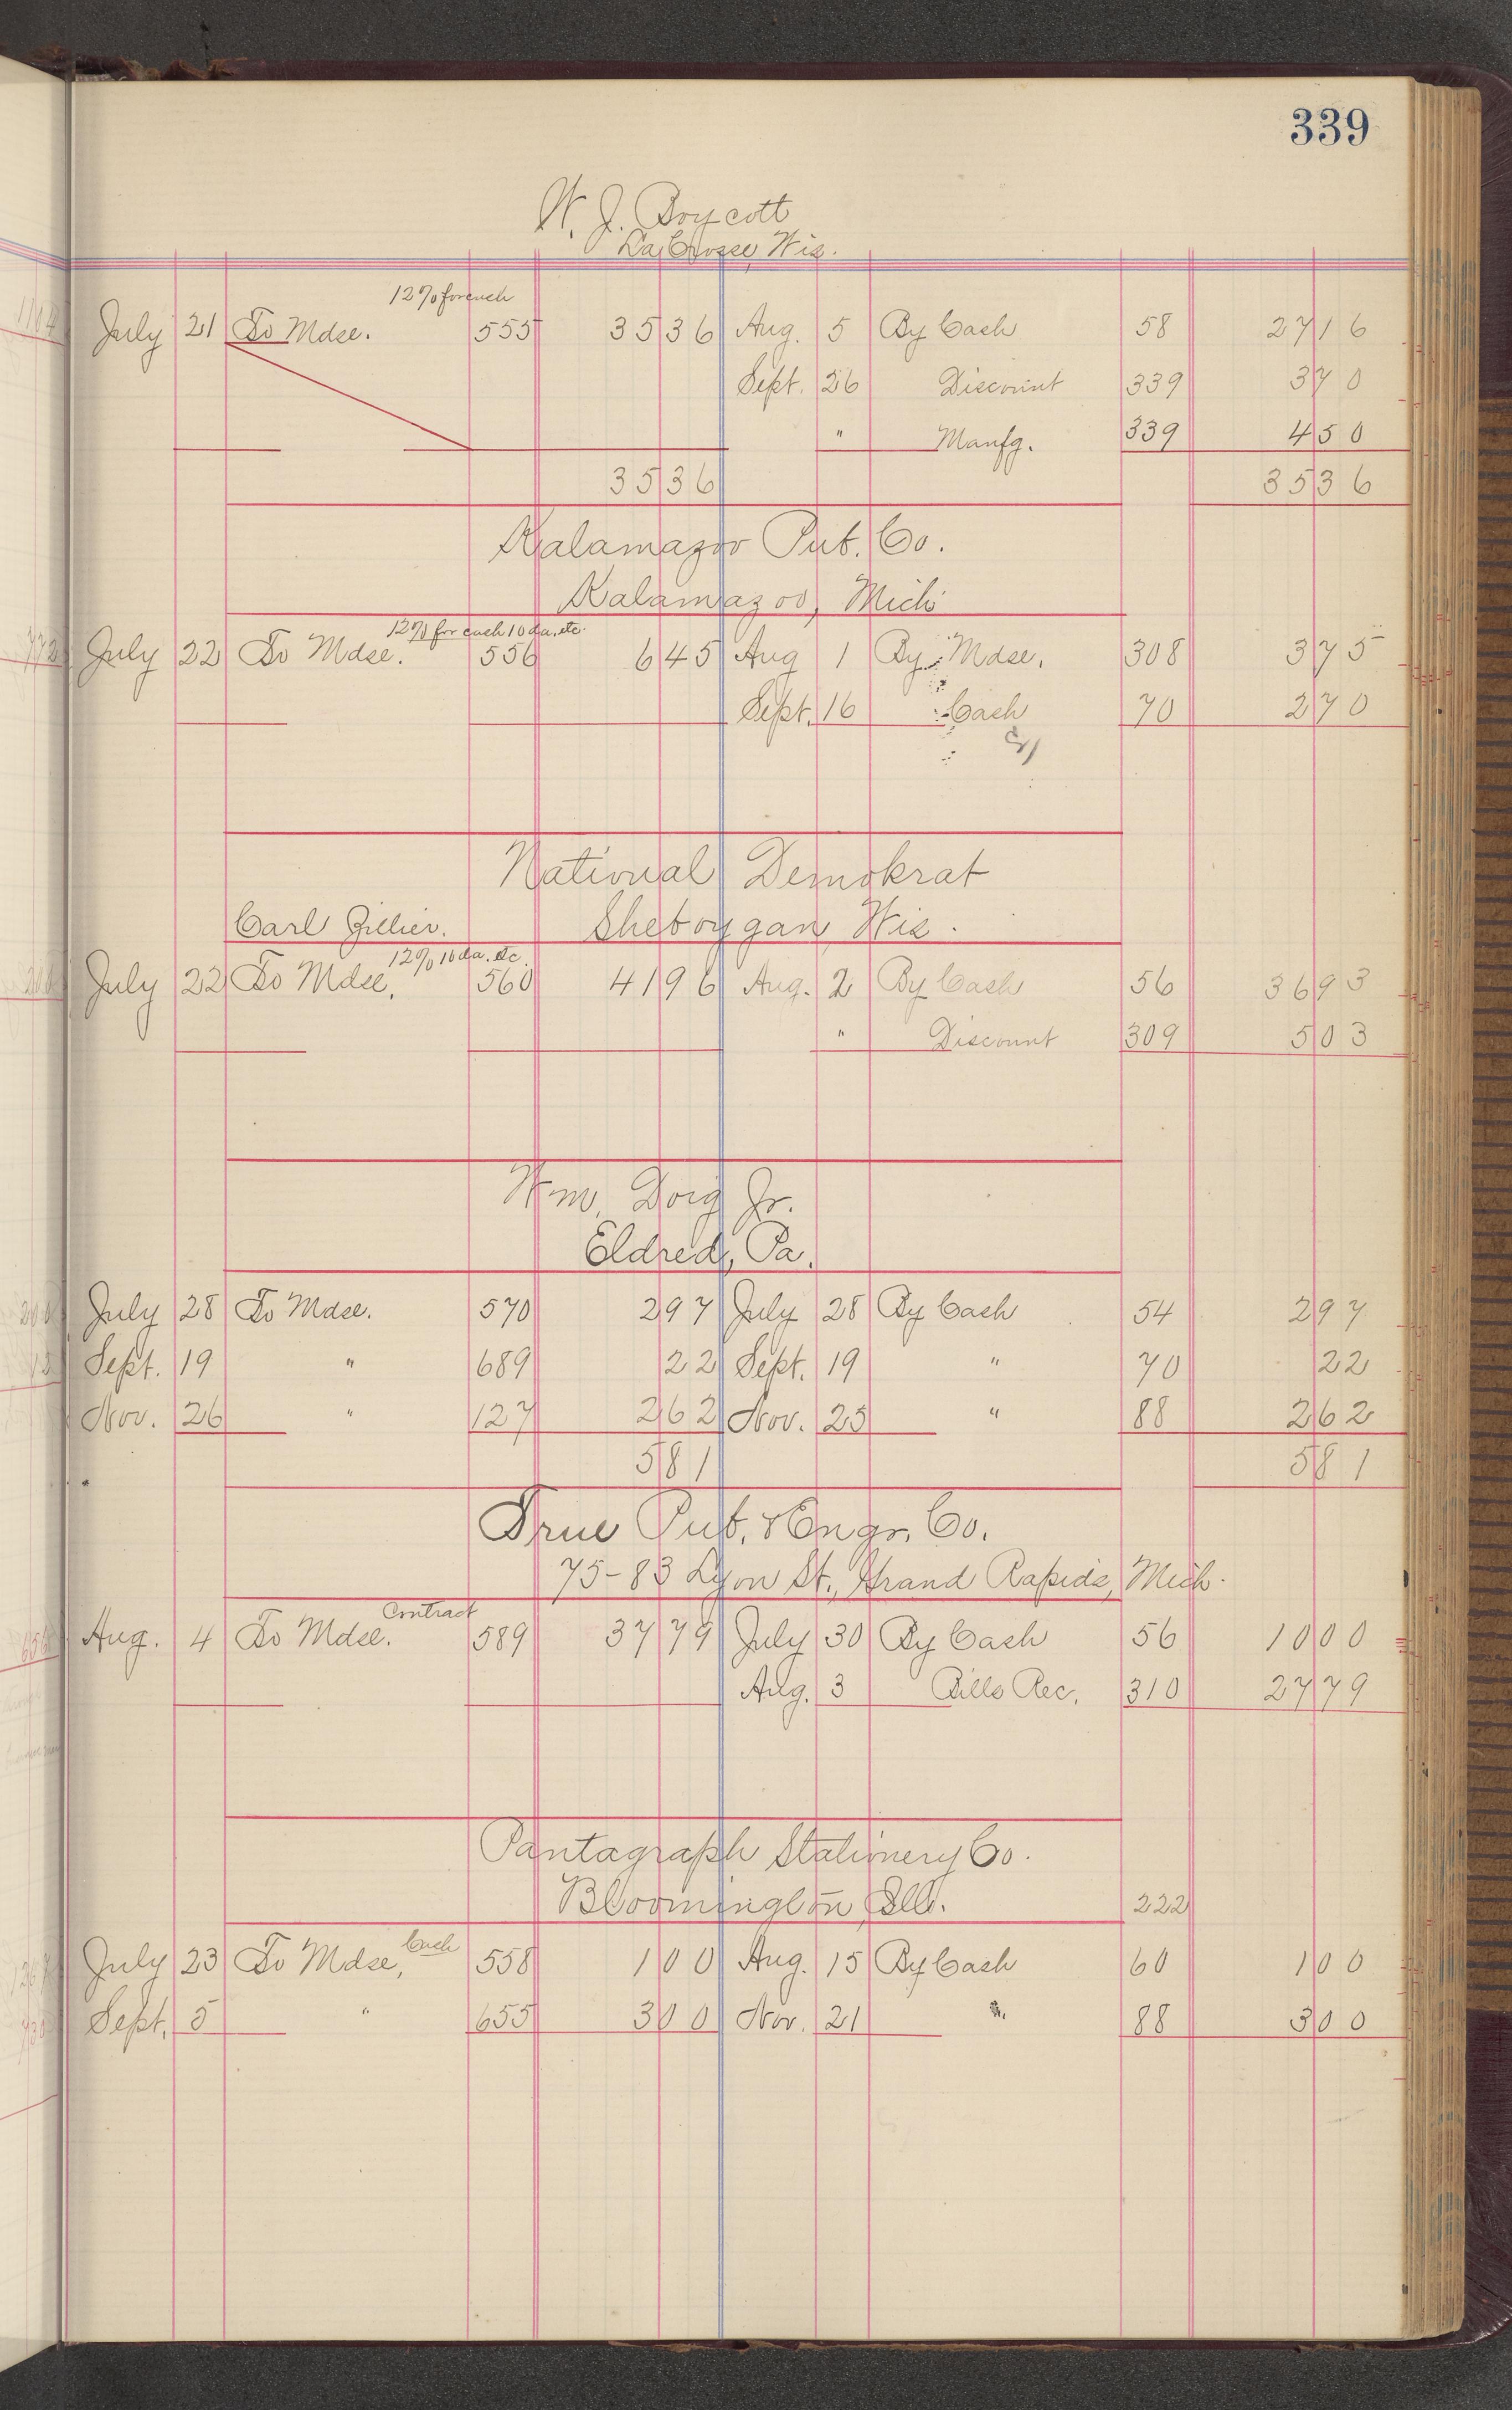 339
W. J. Boycott
La Crosse, Wis.
12% for cash
July 21 To Mdse. 555 35 36 Aug. 5 By Cash 58 27 16
Sept. 26 Discount 339 3 70
" Manfg. 339 4 50
35 36 35 36
Kalamazoo Pub. Co.
Kalamazoo, Mich
12% for cash 10 da. etc.
July 22 To Mdse. 556 6 45 Aug 1 By Mdse. 308 3 75
Sept. 16 Cash 70 2 70
National Demokrat
Carl Zillier. Sheboygan, Wis.
12% 10 da. etc.
July 22 To Mdse. 560 41 96 Aug. 2 By Cash 56 36 93
" Discount 309 5 03
Wm. Doig Jr.
Eldred, Pa.
July 28 To Mdse. 570 2 97 July 28 By Cash 54 2 97
Sept. 19 " 689 22 Sept. 19 " 70 22
Nov. 26 " 127 2 62 Nov. 25 " 88 2 62
5 81 5 81
True Pub. & Engr. Co.
75-83 Lyon St., Grand Rapids, Mich.
Contract
Aug. 4 To Mdse. 589 37 79 July 30 By Cash 56 10 00
Aug. 3 Bills Rec. 310 27 79
Pantagraph Stationery Co.
Bloomington, Ill. 222
Cash
July 23 To Mdse, 558 1 00 Aug. 15 By Cash 60 1 00
Sept. 5 " 655 3 00 Nov. 21 " 88 3 00